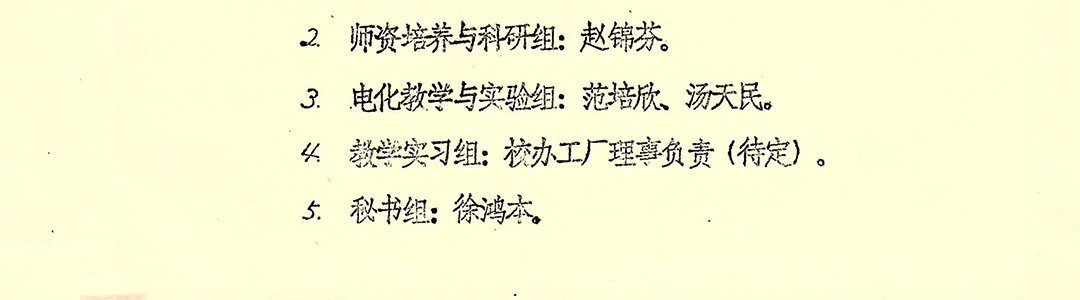 2. 师资培养与科研组：赵锦芬。
3. 电化教学与实验组：范培欣、汤天民。
4. 教学实习组：校办工厂理事负责（待定）。
5. 秘书组：徐鸿本。